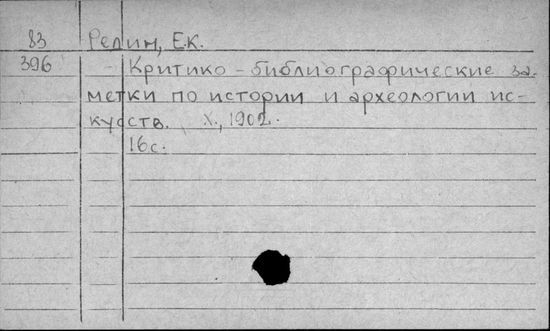 83 Редин, Е.К.
396 Критико-библиографические за-
метки по истории и археологии ис-
кусств. Х., 1902.
16 с.